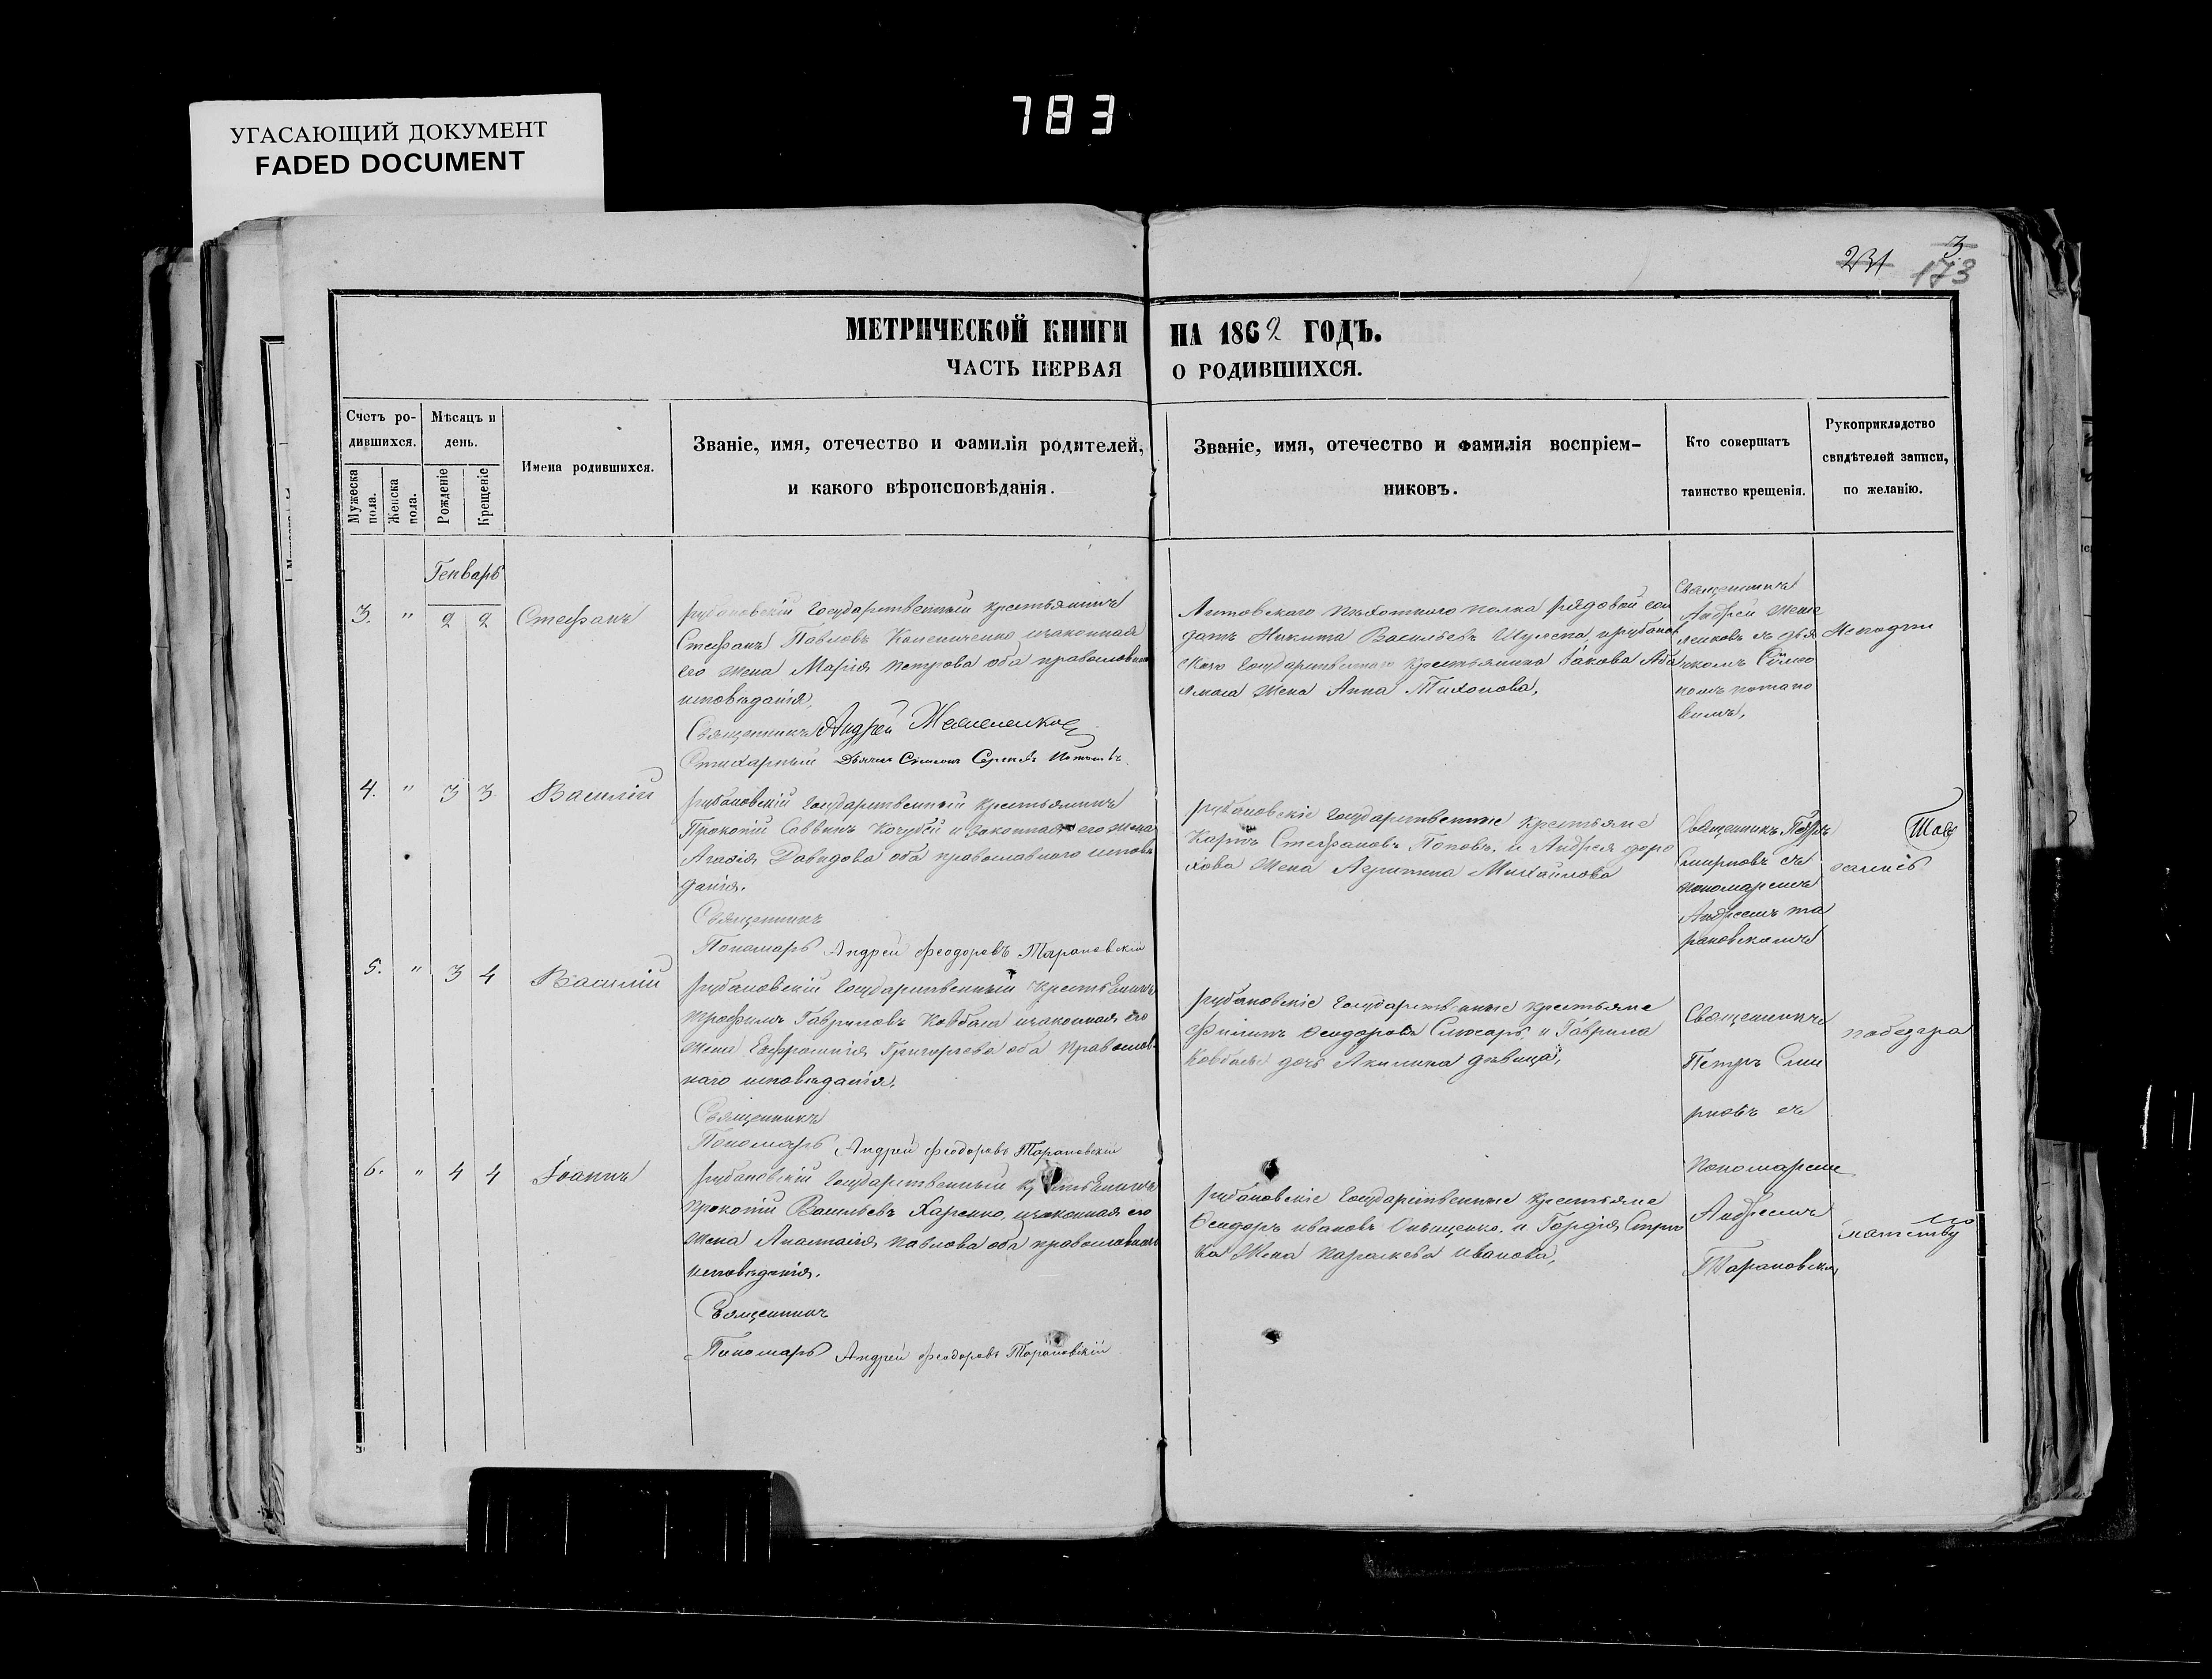 783
УГАСАЮЩИЙ ДОКУМЕНТ
FADED DOCUMENT
231 3
173
МЕТРИЧЕСКОЙ КНИГИ НА 1862 ГОДЪ.
ЧАСТЬ ПЕРВАЯ О РОДИВШИХСЯ.
Счетъ родившихся.
Мужеска пола.
Женска пола.
Мѣсяцъ и день.
Рожденіе
Крещеніе
Имена родившихся.
Званіе, имя, отечество и фамилія родителей,
и какого вѣроисповѣданія.
Званіе, имя, отечество и фамилія воспріем-
никовъ.
Кто совершатъ
таинство крещенія.
Рукоприкладство
свидѣтелей записи,
по желанію.
Генварь
3. " 2 2 Стефанъ
рубановскій государственный крестьянинъ
Стефанъ Павловъ изаконная
его жена Марія Петрова оба православнаго
исповѣданія,
Священникъ Андрей
Стихарный Дьячекъ Симеонъ Сергѣевъ
пѣхотнаго полка рядовой сол
датъ Никита Васильевъ Шулега, ирубанов
скаго государственнаго крестьянина Іакова
жена Анна Тихонова,
Священникъ
Андрей
4. " 3 3 Василій
рубановскій государственный крестьянинъ
Прокопій Саввинъ Кочубей и законная его жена
Агафія Давидова оба православнаго исповѣ
данія.
Священникъ
Пономарь Андрей Феодоровъ Тарановскій
рубановскіе государственные крестьяне
Карпъ Стефановъ Поповъ, и Андрея доро
хова жена Агрипина Михайлова
Священникъ Петръ
Смирновъ съ
пономаремъ
Андреемъ та
рановскимъ
5. " 3 4 Василій
рубановскій государственный крестьянинъ
трофимъ Гавриловъ Ковбаса изаконная его
жена Евфросинія Григорьева оба православ-
наго исповѣданія.
Священникъ
Пономарь Андрей Феодоровъ Тарановскій
рубановскіе государственные крестьяне
Филипъ Феодоровъ Слюсарь, и Гавриила
Ковбасы дочь Акилина дѣвица,
Священникъ
Петръ Сми
рновъ съ
пономаремъ
Андреемъ
Тарановским
6. " 4 4 Іоаннъ
рубановскій государственный крестьянинъ
прокопій Васильевъ Харенко, изаконная его
жена Анастасія Павлова оба православнаго
исповѣданія.
Священникъ
Пономарь Андрей Феодоровъ Тарановскій
рубановскіе государственные крестьяне
Феодоръ ивановъ Онищенко, и Гордія
жена параскева иванова,